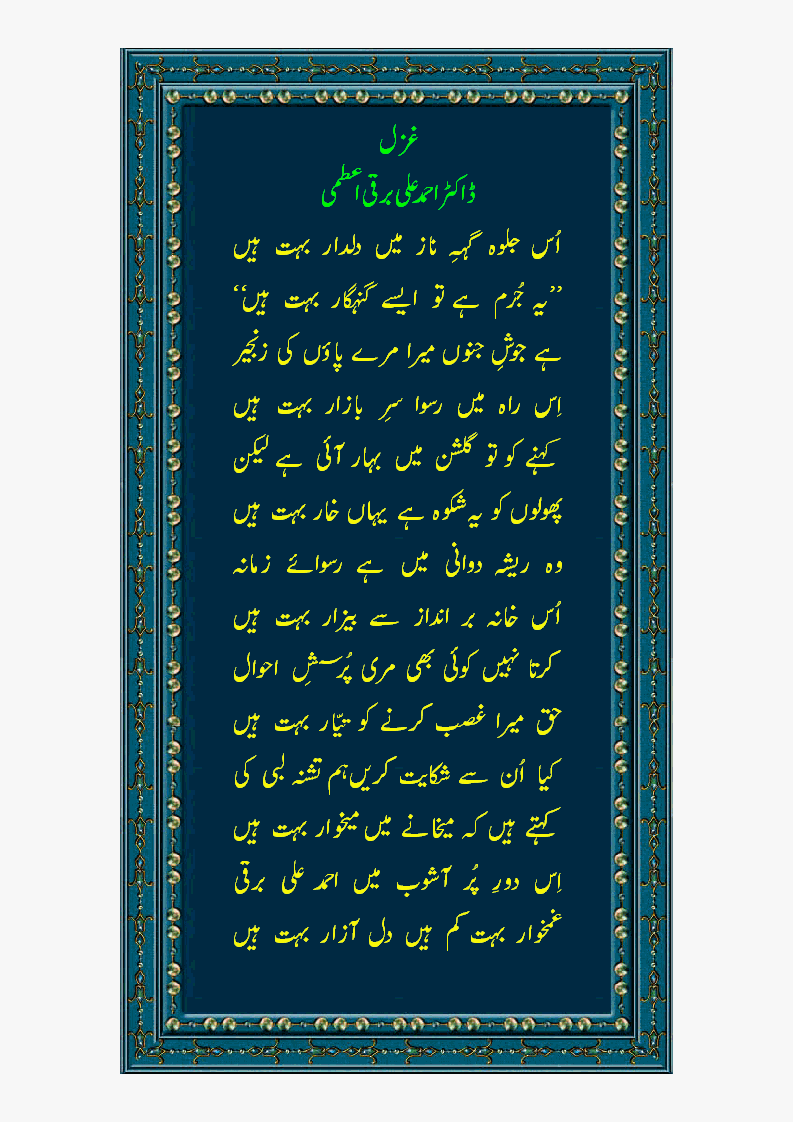 غزل
ڈاکٹر احمد علی برقی اعظمی
اُس جلوہ گہہِ ناز میں دلدار بہت ہیں
’’یہ جُرم ہے تو ایسے گنہگار بہت ہیں‘‘
ہے جوشِ جنوں میرا مرے پاؤں کی زنجیر
اِس راہ میں رسوا سرِ بازار بہت ہیں
کہنے کو تو گلشن میں بہار آئی ہے لیکن
پھولوں کو یہ شکوہ ہے یہاں خار بہت ہیں
وہ ریشہ دوانی میں ہے رسوائے زمانہ
اُس خانہ بر انداز سے بیزار بہت ہیں
کرتا نہیں کوئی بھی مری پُرسشِ احوال
حق میرا غصب کرنے کو تیّار بہت ہیں
کیا اُن سے شکایت کریں ہم تشنہ لبی کی
کہتے ہیں کہ میخانے میں میخوار بہت ہیں
اِس دورِ پُر آشوب میں احمد علی برقی
غمخوار بہت کم ہیں دل آزار بہت ہیں